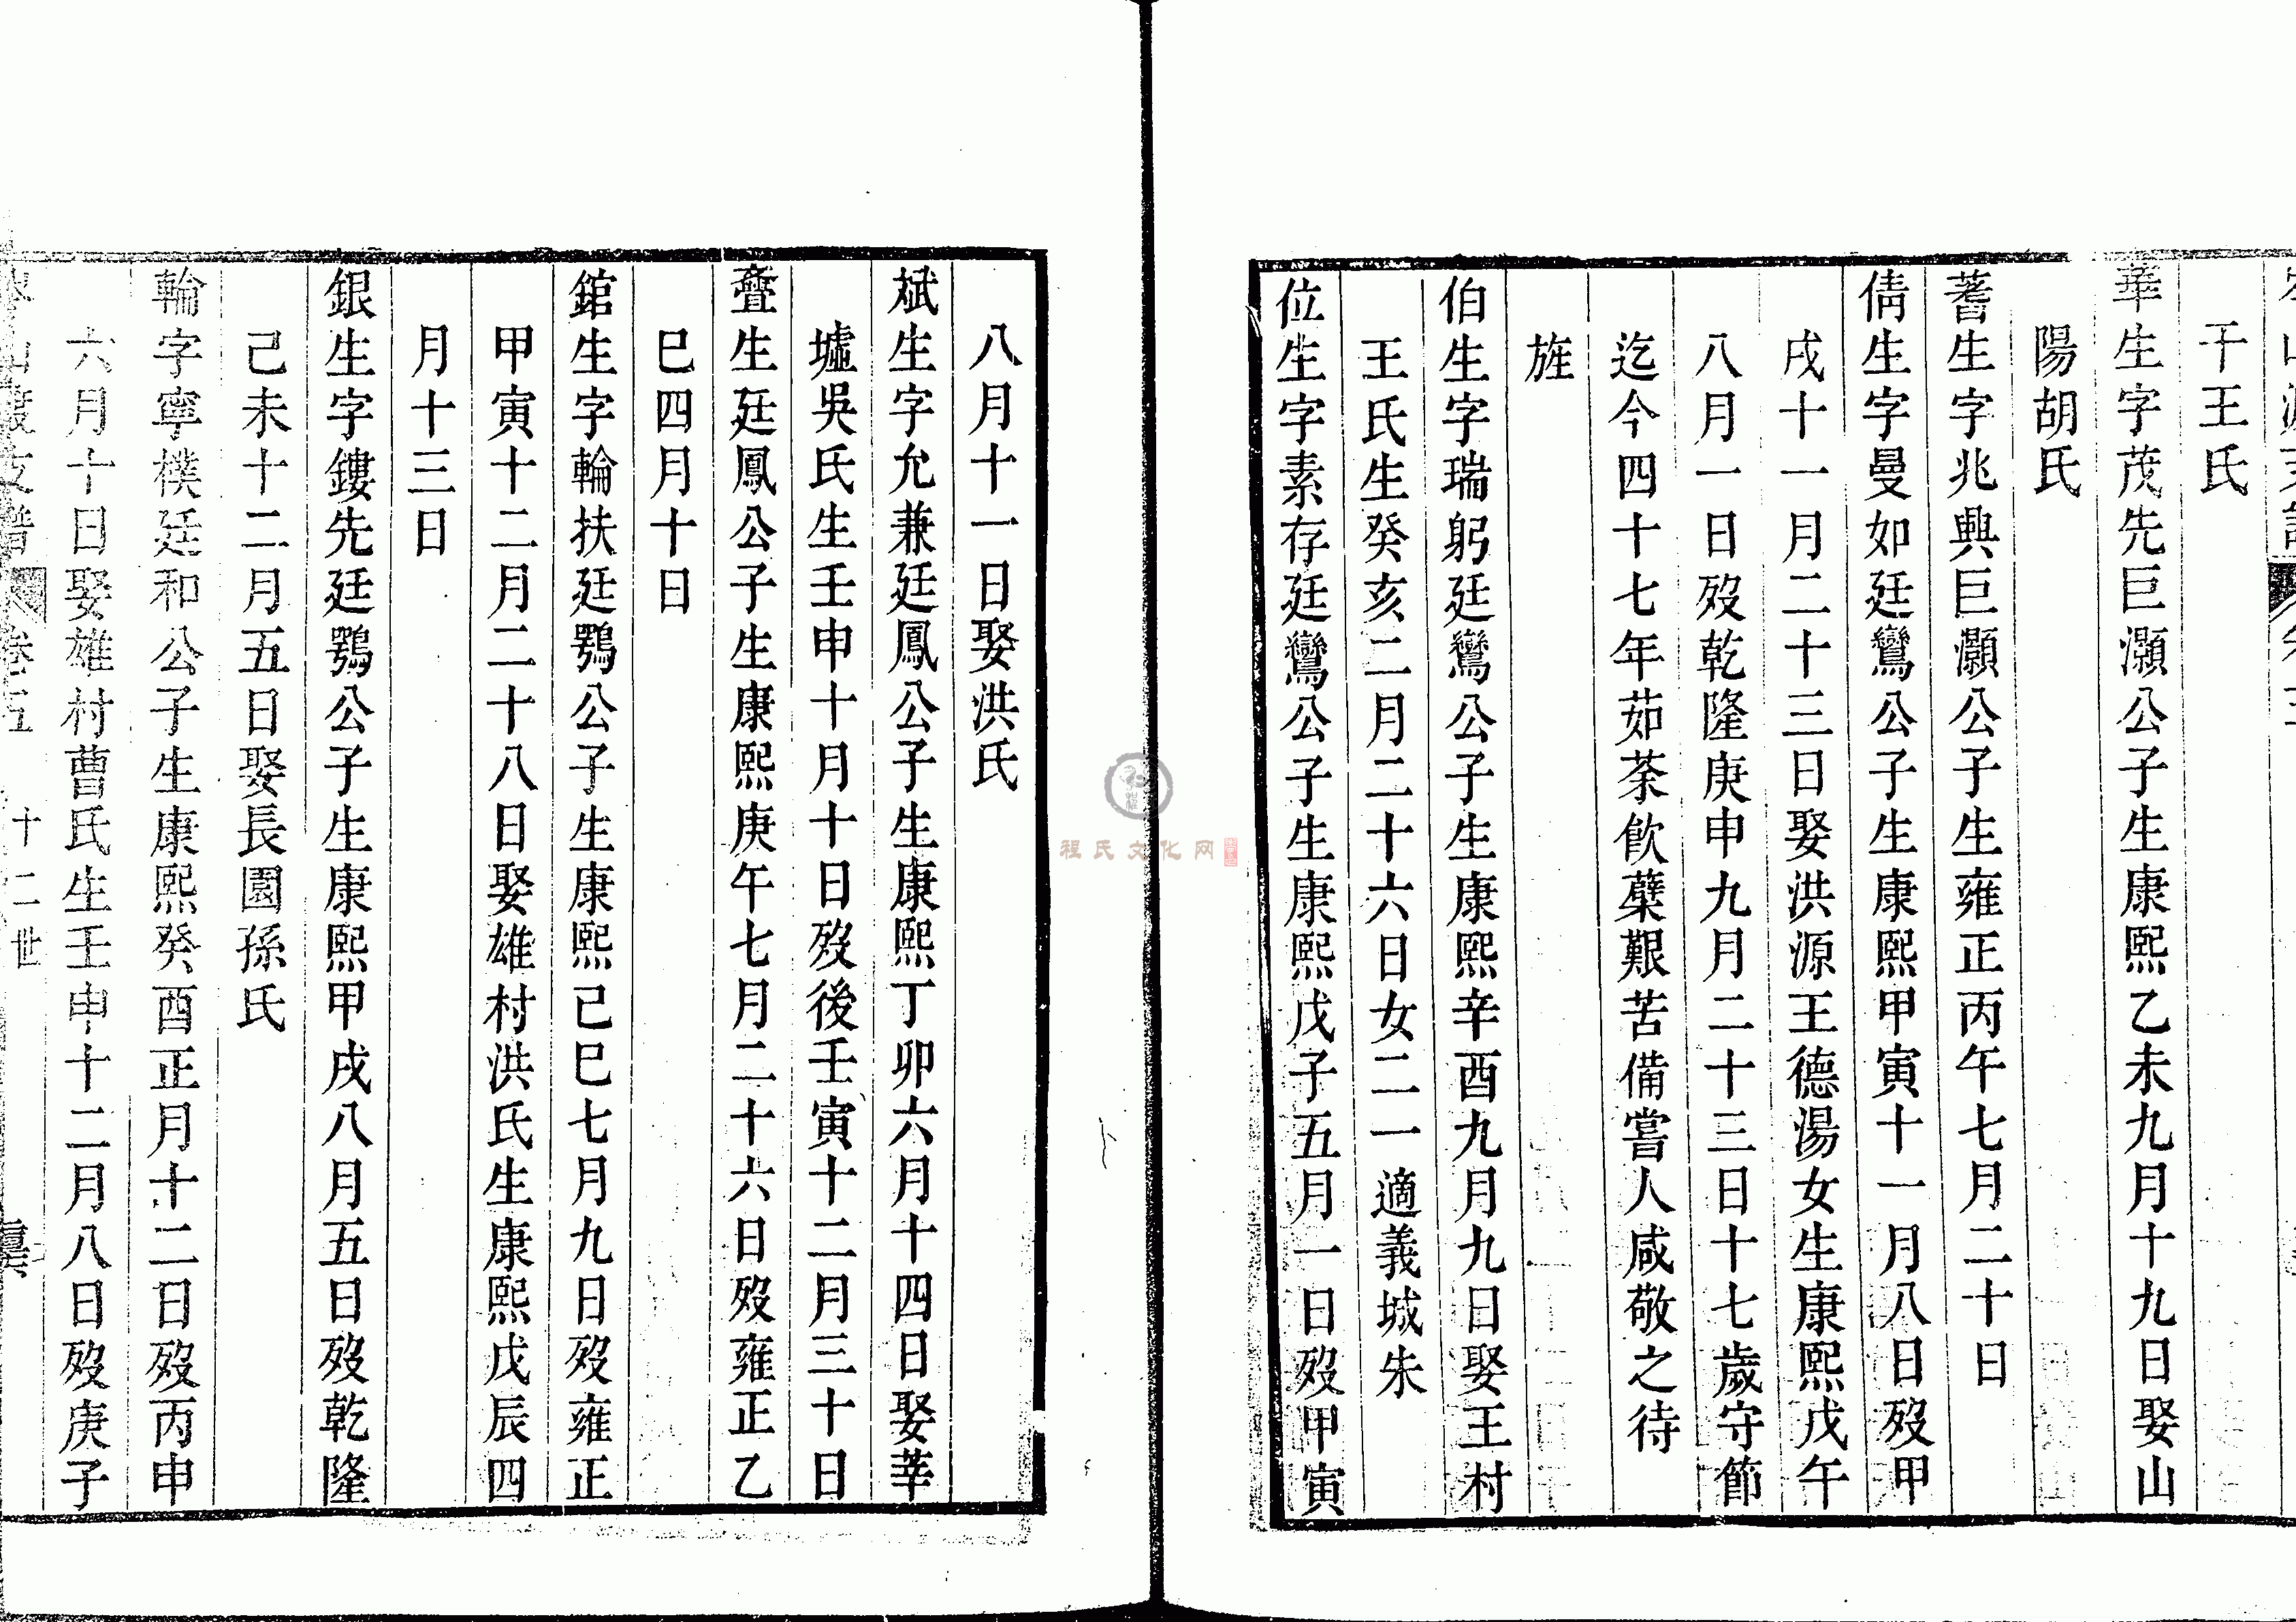 干王氏
華生字茂先巨灝公子生康熙乙未九月十九日娶山
陽胡氏
蓍生字兆興巨灝公子生雍正丙午七月二十日
倩生字曼如廷鸞公子生康熙甲寅十一月八日歿甲
戌十一月二十三日娶洪源王德湯女生康熙戊午
八月一日歿乾隆庚申九月二十三日十七歲守節
迄今四十七年茹荼飲蘗艱苦備嘗人咸敬之待
旌
伯生字瑞躬廷鸞公子生康熙辛酉九月九日娶王村
王氏生癸亥二月二十六日女二一適義城朱
位生字素存廷鸞公子生康熙戊子五月一日歿甲寅
八月十一日娶洪氏
斌生字允兼廷鳳公子生康熙丁卯六月十四日娶莘
墟吳氏生壬申十月十日歿後壬寅十二月三十日
生廷鳳公子生康熙庚午七月二十六日歿雍正乙
巳四月十日
錧生字輪扶廷鶚公子生康熙己巳七月九日歿雍正
甲寅十二月二十八日娶雄村洪氏生康熙戊辰四
月十三日
銀生字鏤先廷鶚公子生康熙甲戌八月五日歿乾隆
己未十二月五日娶長園孫氏
輪字寧樸廷和公子生康熙癸酉正月十二日歿丙申
六月十日娶雄村曹氏生壬申十二月八日歿庚子
支譜 卷五 十二世
程氏文化网